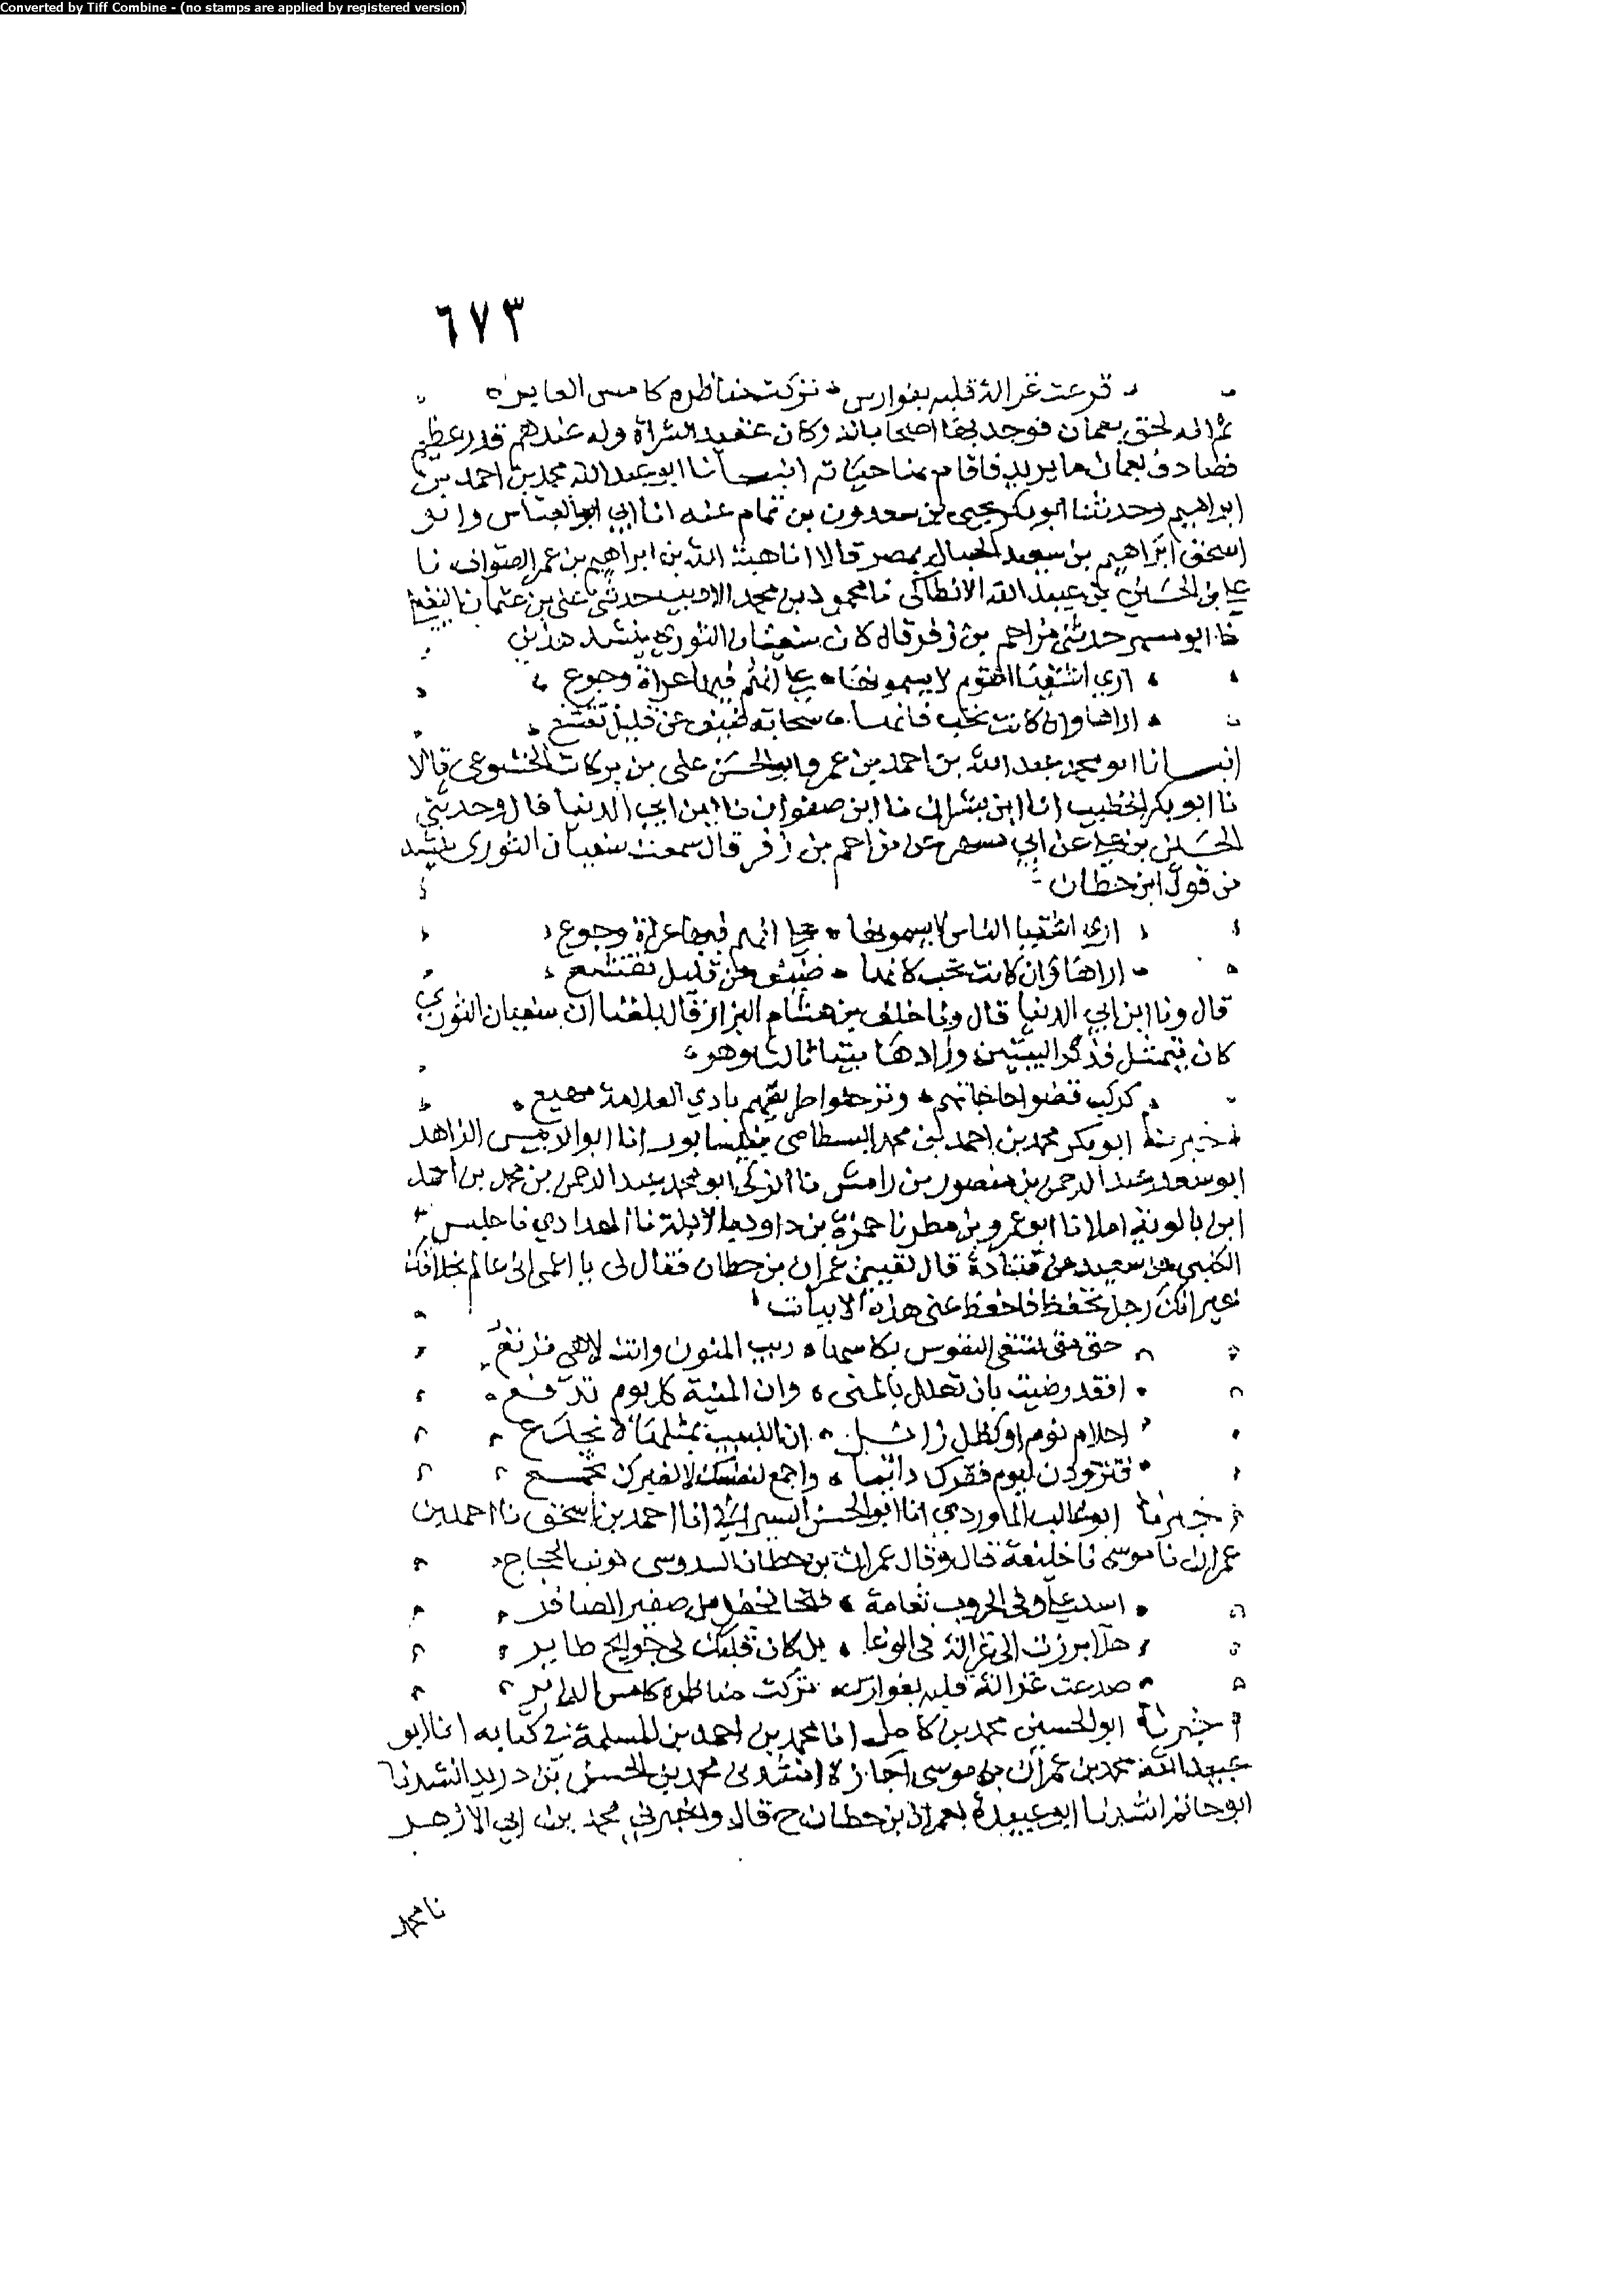 Converted by Tiff Combine - (no stamps are applied by registered version)
٦٧٣
قرعت غزالة قلبه بفوارس تركت مناظره كامس الغابره
ثم انه لحق بعمان فوجد بها اصحابا له وكان عقيد الشراة وله عندهم قدر عظيم
فصادف بعمان ما يريد فاقام بها حتى مات انبسانا ابو عبد الله محمد بن احمد بن
ابراهيم وحدثنا ابو بكر يحيى بن سعدون بن تمام عنه انا ابي ابو العباس وابو
اسحق ابراهيم بن سعيد الحبال بمصر قالا انا هبة الله بن ابراهيم بن عمر الصواف نا
علي بن الحسين بن عبيد الله الانطاكي نا محمود بن محمد الاديب حدثني علي بن عثمان النفيلي
نا ابو مسهر حدثني مزاحم بن زفر قال كان سفيان الثوري ينشد هذين
ارى اشقيا القوم لا يسمونها على انهم فيها عراة وجوع
اراها وان كانت تحب فانها سحابة صيف عن قليل تقشع
انبسانا ابو محمد عبد الله بن احمد بن عمر وابو الحسن علي بن بركات الخشوعي قالا
نا ابو بكر الخطيب انا ابن بشران نا ابن صفوان نا ابن ابي الدنيا قال وحدثني
الحسين بن علي عن ابي مسهر عن مزاحم بن زفر قال سمعت سفيان الثوري ينشد
من قول ابن حطان
ارى اشقيا الناس لا يسمونها على انهم فيها عراة وجوع
اراها وان كانت تحب كانها صيف عن قليل تقشع
قال ونا ابن ابي الدنيا قال ونا خلف بن هشام البزاز قال بلغنا ان سفيان الثوري
كان يتمثل فذكر البيتين وزادها بيتا ثالثا وهو
كركب قضوا حاجاتهم وترحلوا طريقهم بادي العلامة مهيع
اخبرنا ابو بكر محمد بن احمد بن محمد البسطامي بنيسابور انا ابو الزاهد
ابو سعد عبد الرحمن بن منصور بن رامش نا الزكي ابو محمد عبد الرحمن بن محمد بن احمد
ابن بالويه املا نا ابو عمرو بن مطر نا حمزة بن داود بالابلة نا نا حلبس
الكلبي عن سعيد عن قتادة قال لقيني عمران بن حطان فقال لي يا اعمى اني عالم بخلافك
غير انك رجل تحفظ فاحفظ عني هذه الابيات
حتى متى تسقى النفوس بكاسها ريب المنون وانت لاهي ترتع
افقد رضيت بان تعلل بالمنى وان المنية كل يوم تدفع
احلام نوم او كظل زائل ان اللبيب بمثلها لا يخدع
فتزودن ليوم فقرك دائبا واجمع لنفسك لا لغيرك تجمع
اخبرنا ابو غالب الماوردي انا ابو الحسن السيرافي انا احمد بن اسحق نا احمد بن
عمران نا موسى نا خليفة قال وقال عمران بن حطان السدوسي الحجاج
اسد علي وفي الحروب نعامة فتخا تجفل من صفير الصافر
هلا برزت الى غزالة في الوغا بل كان قلبك في جوانح طاير
صدعت غزالة قلبه بفوارس تركت مناظره كامس الدابر
اخبرنا ابو الحسين محمد بن كامل انا محمد بن احمد بن المسلمة في كتابه انا ابو
عبيد الله محمد بن عمران بن موسى اجازة انشدني محمد بن الحسن بن دريد انشدنا
ابو حاتم انشدنا ابو عبيدة لعمران بن حطان ح قال واخبرني محمد بن ابي الازهر
نا محمد